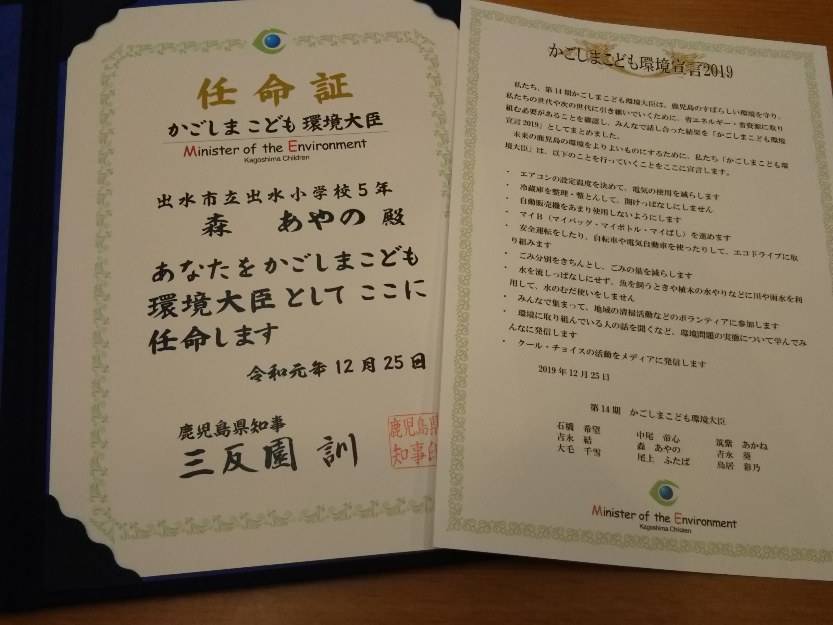 任命証
かごしまこども環境大臣
Minister of the Environment
Kagoshima Children
出水市立出水小学校5年
森 あやの 殿
あなたをかごしまこども
環境大臣としてここに
任命します
令和元年12月25日
鹿児島県知事
三反園 訓
鹿児島県
知事印
かごしまこども環境宣言2019
私たち、第14期かごしまこども環境大臣は、鹿児島のすばらしい環境を守り、
私たちの世代や次の世代に引き継いでいくために、省エネルギー・省資源に取り
組む必要があることを確認し、みんなで話し合った結果を「かごしまこども環境
宣言2019」としてまとめました。
未来の鹿児島の環境をよりよいものにするために、私たち「かごしまこども環
境大臣」は、以下のことを行っていくことをここに宣言します。
・ エアコンの設定温度を決めて、電気の使用を減らします
・ 冷蔵庫を整理・整とんして、開けっぱなしにしません
・ 自動販売機をあまり使用しないようにします
・ マイB（マイバッグ・マイボトル・マイばし）を進めます
・ 安全運転をしたり、自転車や電気自動車を使ったりして、エコドライブに取
り組みます
・ ごみ分別をきちんとし、ごみの量を減らします
・ 水を流しっぱなしにせず、魚を飼うときや植木の水やりなどに川や雨水を利
用して、水のむだ使いをしません
・ みんなで集まって、地域の清掃活動などのボランティアに参加します
・ 環境に取り組んでいる人の話を聞くなど、環境問題の実態について学んでみ
んなに発信します
・ クール・チョイスの活動をメディアに発信します
2019年12月25日
第14期 かごしまこども環境大臣
石橋 希望 中尾 帝心 筑紫 あかね
吉永 結 森 あやの 吉永 葵
大毛 千雪 尾上 ふたば 鳥居 彩乃
Minister of the Environment
Kagoshima Children